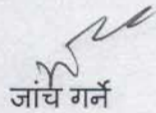 जांच गर्ने